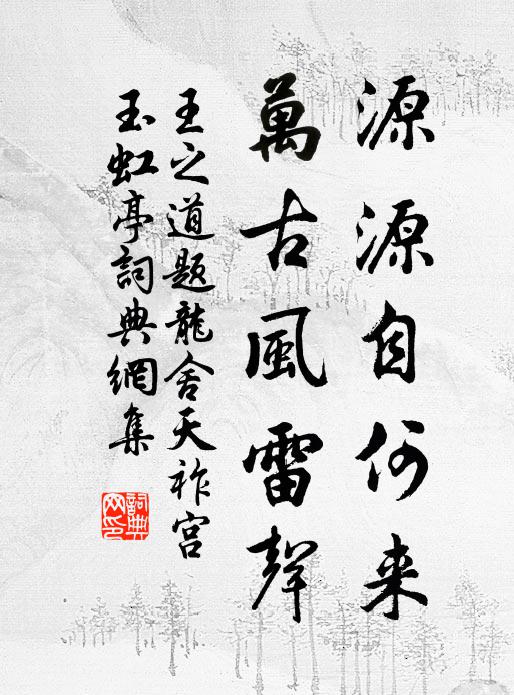 源源自何来
萬古風雷聲
王之道题龍舍天祚宫
玉虹亭詞典網集
詞典网印